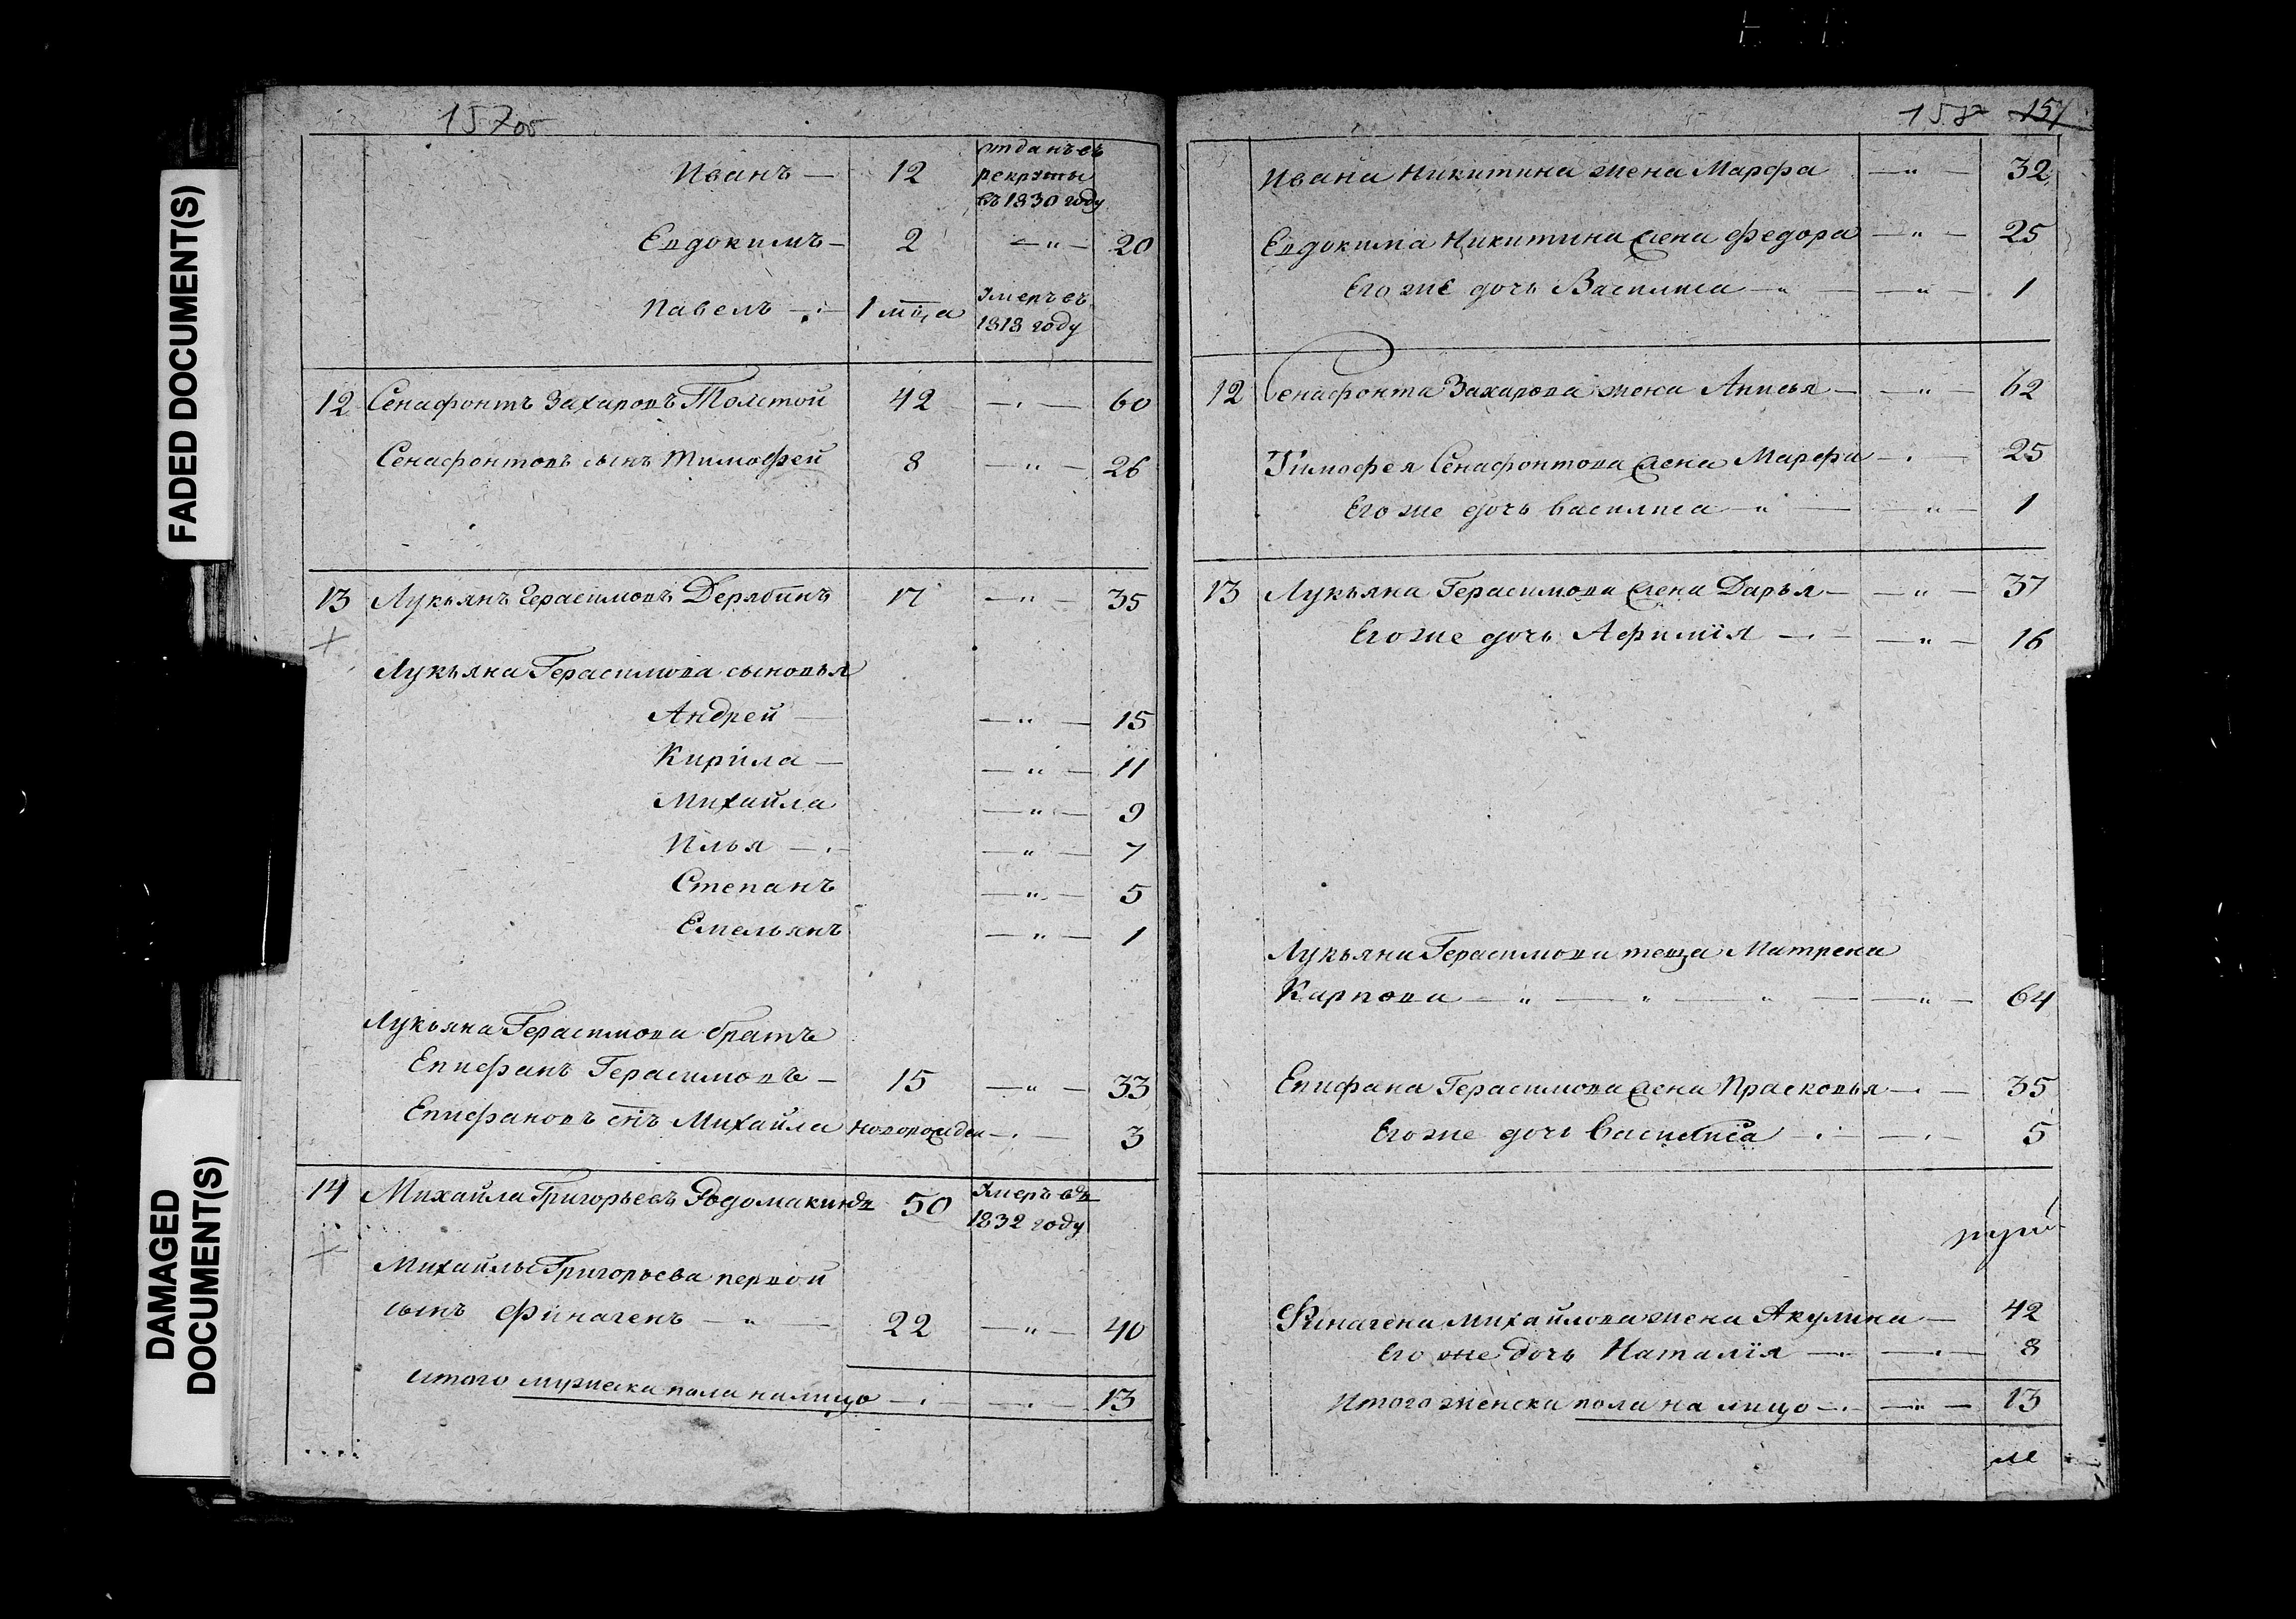 157 об
Иванъ — 12 отданъ въ
рекруты
въ 1830 году
Евдокимъ — 2 — " — 20
Павелъ — 1 мца умеръ въ
1818 году
12 Сенафонтъ Захаровъ Толстой 42 — 60
Сенафонтовъ сынъ Тимофей 8 — " — 26
13 Лукьянъ Герасимовъ Дерябинъ 17 — " — 35
Лукьяна Герасимова сыновья
Андрей — — " — 15
Кирила — — " — 11
Михайла — " — 9
Илья — — " — 7
Степанъ — " — 5
Емельянъ — " — 1
Лукьяна Герасимова братъ
Епифанъ Герасимовъ — 15 — " — 33
Епифановъ снъ Михайла новорожден — 3
14 Михайла Григорьевъ Родомакинъ 50 умеръ въ
1832 году
Михайлы Григорьева первой
сынъ Финагенъ — " — 22 — " — 40
итого мужеска пола налицо — 13
158 157
Ивана Никитина жена Марфа — " — 32
Евдокима Никитина жена Федора — " — 25
Его же дочь Василиса — " — 1
12 Сенафонта Захарова жена Анисья — — " — 62
Тимофея Сенафонтова жена Марфа — 25
Его же дочь Василиса — " — — " — 1
13 Лукьяна Герасимова жена Дарья — — " — 37
Его же дочь Афимія — — " — 16
Лукьяна Герасимова теща Матрена
Карпова — " — " — " — " — 64
Епифана Герасимова жена Прасковья — 35
Его же дочь Василиса — 5
Финагена Михайлова жена Акулина — 42
Его же дочь Наталія — 8
Итого женска пола на лицо — " — 13
FADED DOCUMENT(S)
DAMAGED
DOCUMENT(S)